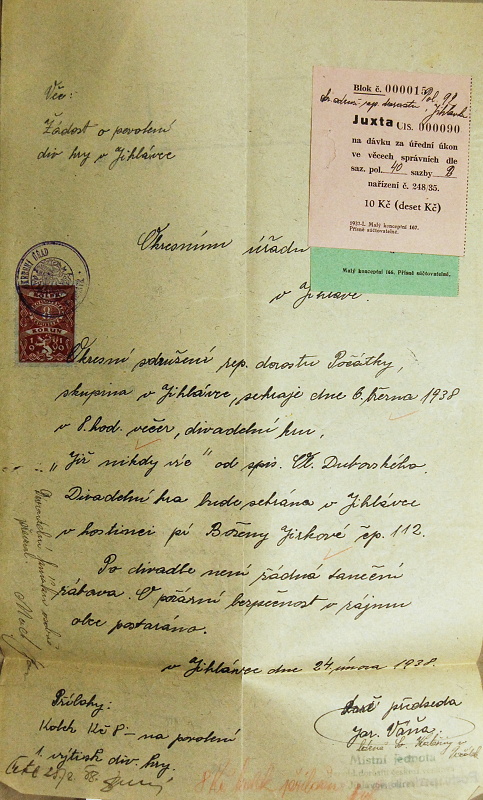 Věc:
Žádost o povolení
div hry v Jihlávce
Blok č. 000015
Juxta čís. 000090
na dávku za úřední úkon
ve věcech správních dle
saz. pol. 40 sazby B
nařízení č. 248/35.
10 Kč (deset Kč)
1937-I. Malý konceptní 167.
Přísně súčtovatelné.
Malý konceptní 166. Přísně súčtovatelné.
Okresnímu úřadu
v Jihlavě.
Okresní sdružení rep. dorostu Počátky,
skupina v Jihlávce, sehraje dne 6. března 1938
v 8. hod. večer, divadelní hru,
„Již nikdy víc" od spis. Dubovského.
Divadelní hra bude sehrána v Jihlávce
v hostinci pí Boženy Jirkové čp. 112.
Po divadle není řádná taneční
zábava. O požární bezpečnost v zájmu
obce postaráno.
v Jihlávce dne 24. února 1938.
Přílohy:
Kolek Kč 8 - na povolení
1. výtisk div. hry.
předseda
Jar. Váňa
Místní jednota